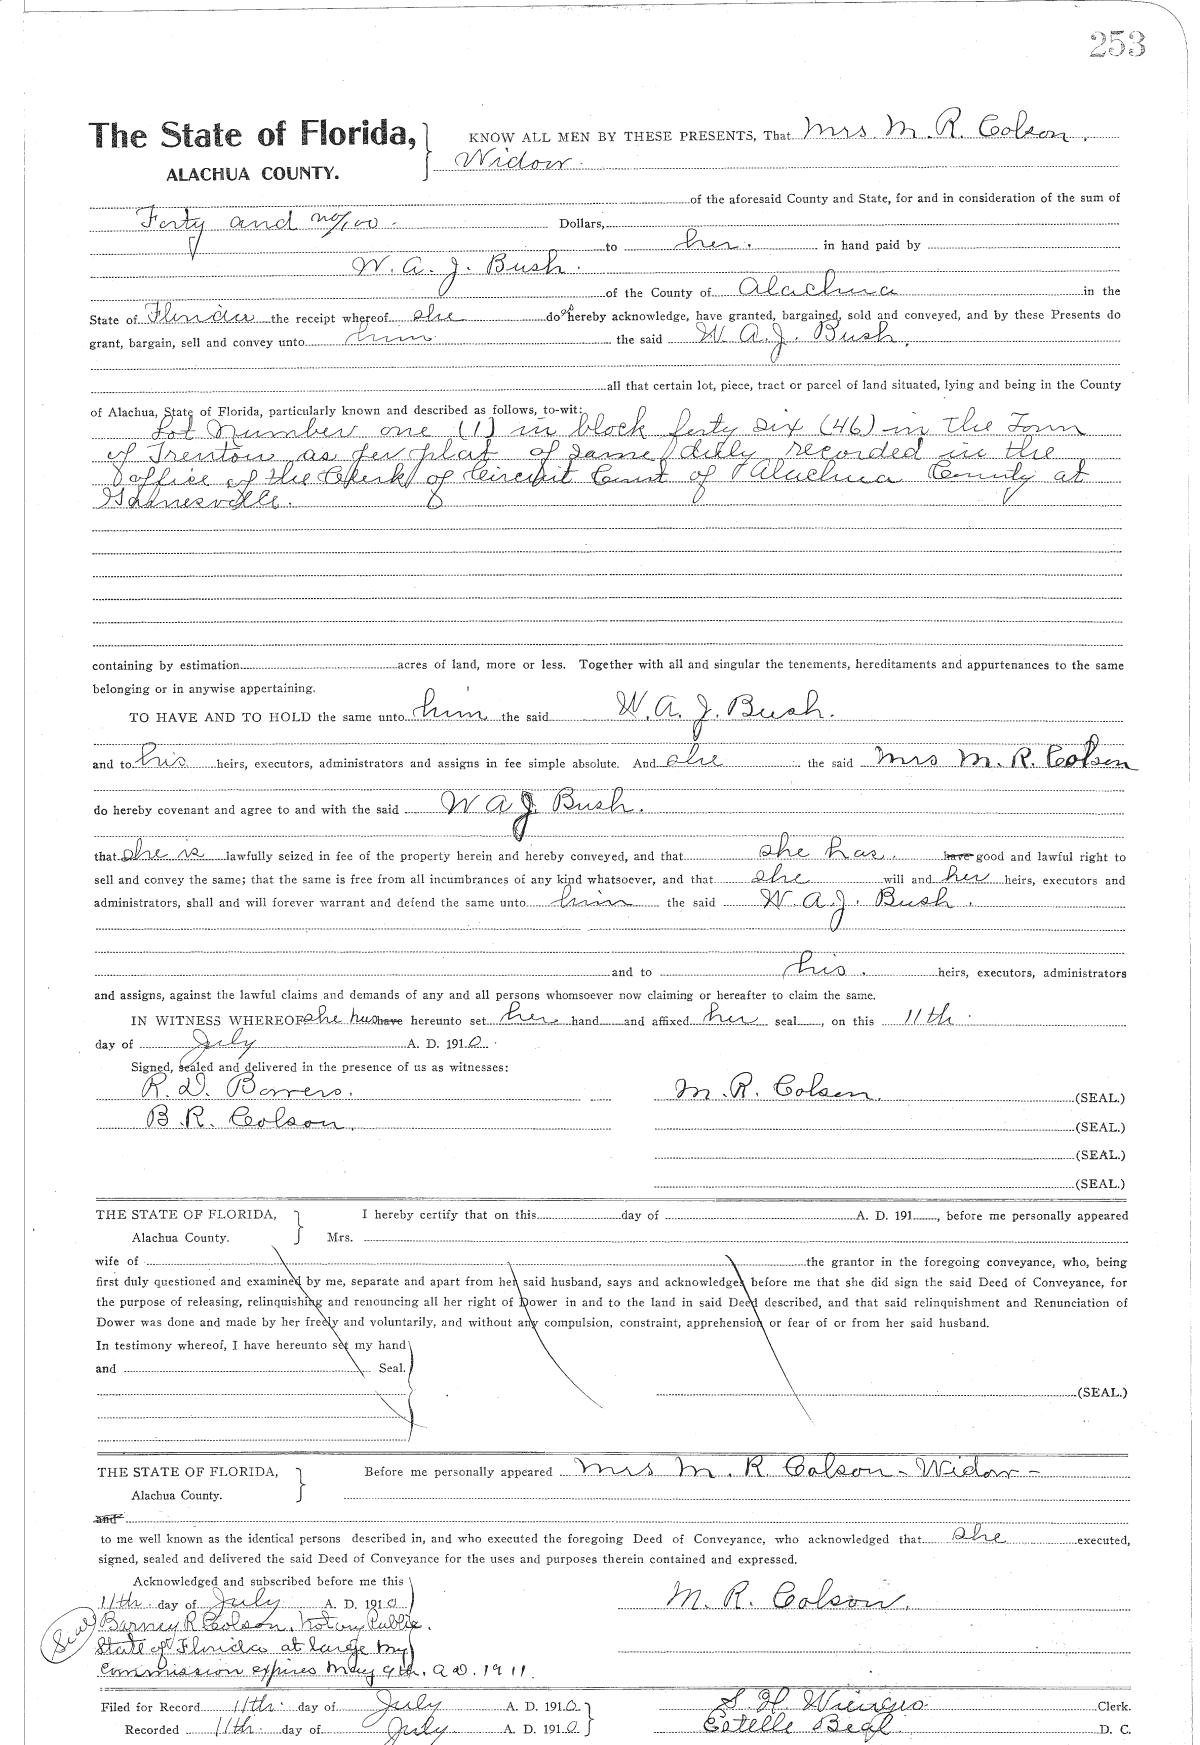 253
The State of Florida, KNOW ALL MEN BY THESE PRESENTS, That Mrs M. R. Colson,
ALACHUA COUNTY. Widow
of the aforesaid County and State, for and in consideration of the sum of
Forty and no/100 Dollars,
to her. in hand paid by
W. A. J. Bush.
of the County of Alachua in the
State of Florida the receipt whereof she does hereby acknowledge, have granted, bargained, sold and conveyed, and by these Presents do
grant, bargain, sell and convey unto him the said W. A. J. Bush,
all that certain lot, piece, tract or parcel of land situated, lying and being in the County
of Alachua, State of Florida, particularly known and described as follows, to-wit:
Lot Number one (1) in block forty six (46) in the Town
of Trenton as per plat of same duly recorded in the
office of the Clerk of Circuit Court of Alachua County at
Gainesville.
containing by estimation acres of land, more or less. Together with all and singular the tenements, hereditaments and appurtenances to the same
belonging or in anywise appertaining.
TO HAVE AND TO HOLD the same unto him the said W. A. J. Bush.
and to his heirs, executors, administrators and assigns in fee simple absolute. And she the said Mrs M. R. Colson
do hereby covenant and agree to and with the said W A J. Bush.
that she is lawfully seized in fee of the property herein and hereby conveyed, and that she has. have good and lawful right to
sell and convey the same; that the same is free from all incumbrances of any kind whatsoever, and that she will and her heirs, executors and
administrators, shall and will forever warrant and defend the same unto him the said W. A. J. Bush.
and to his. heirs, executors, administrators
and assigns, against the lawful claims and demands of any and all persons whomsoever now claiming or hereafter to claim the same.
IN WITNESS WHEREOF she has have hereunto set her hand and affixed her seal, on this 11th
day of July A. D. 1910.
Signed, sealed and delivered in the presence of us as witnesses:
R. D. M. R. Colson. (SEAL.)
B. R. Colson. (SEAL.)
(SEAL.)
(SEAL.)
THE STATE OF FLORIDA, I hereby certify that on this day of A. D. 191, before me personally appeared
Alachua County. Mrs.
wife of the grantor in the foregoing conveyance, who, being
first duly questioned and examined by me, separate and apart from her said husband, says and acknowledges before me that she did sign the said Deed of Conveyance, for
the purpose of releasing, relinquishing and renouncing all her right of Dower in and to the land in said Deed described, and that said relinquishment and Renunciation of
Dower was done and made by her freely and voluntarily, and without any compulsion, constraint, apprehension or fear of or from her said husband.
In testimony whereof, I have hereunto set my hand
and Seal.
(SEAL.)
THE STATE OF FLORIDA, Before me personally appeared Mrs M. R. Colson - Widow -
Alachua County.
and
to me well known as the identical persons described in, and who executed the foregoing Deed of Conveyance, who acknowledged that she executed,
signed, sealed and delivered the said Deed of Conveyance for the uses and purposes therein contained and expressed.
Acknowledged and subscribed before me this
11th day of July A. D. 1910 M. R. Colson.
Seal Barney R Colson, Notary Public.
State of Florida at large My
Commission expires May 9th. A.D. 1911.
Filed for Record 11th day of July A. D. 1910 S. H. Clerk.
Recorded 11th day of July A. D. 1910 Estelle D. C.